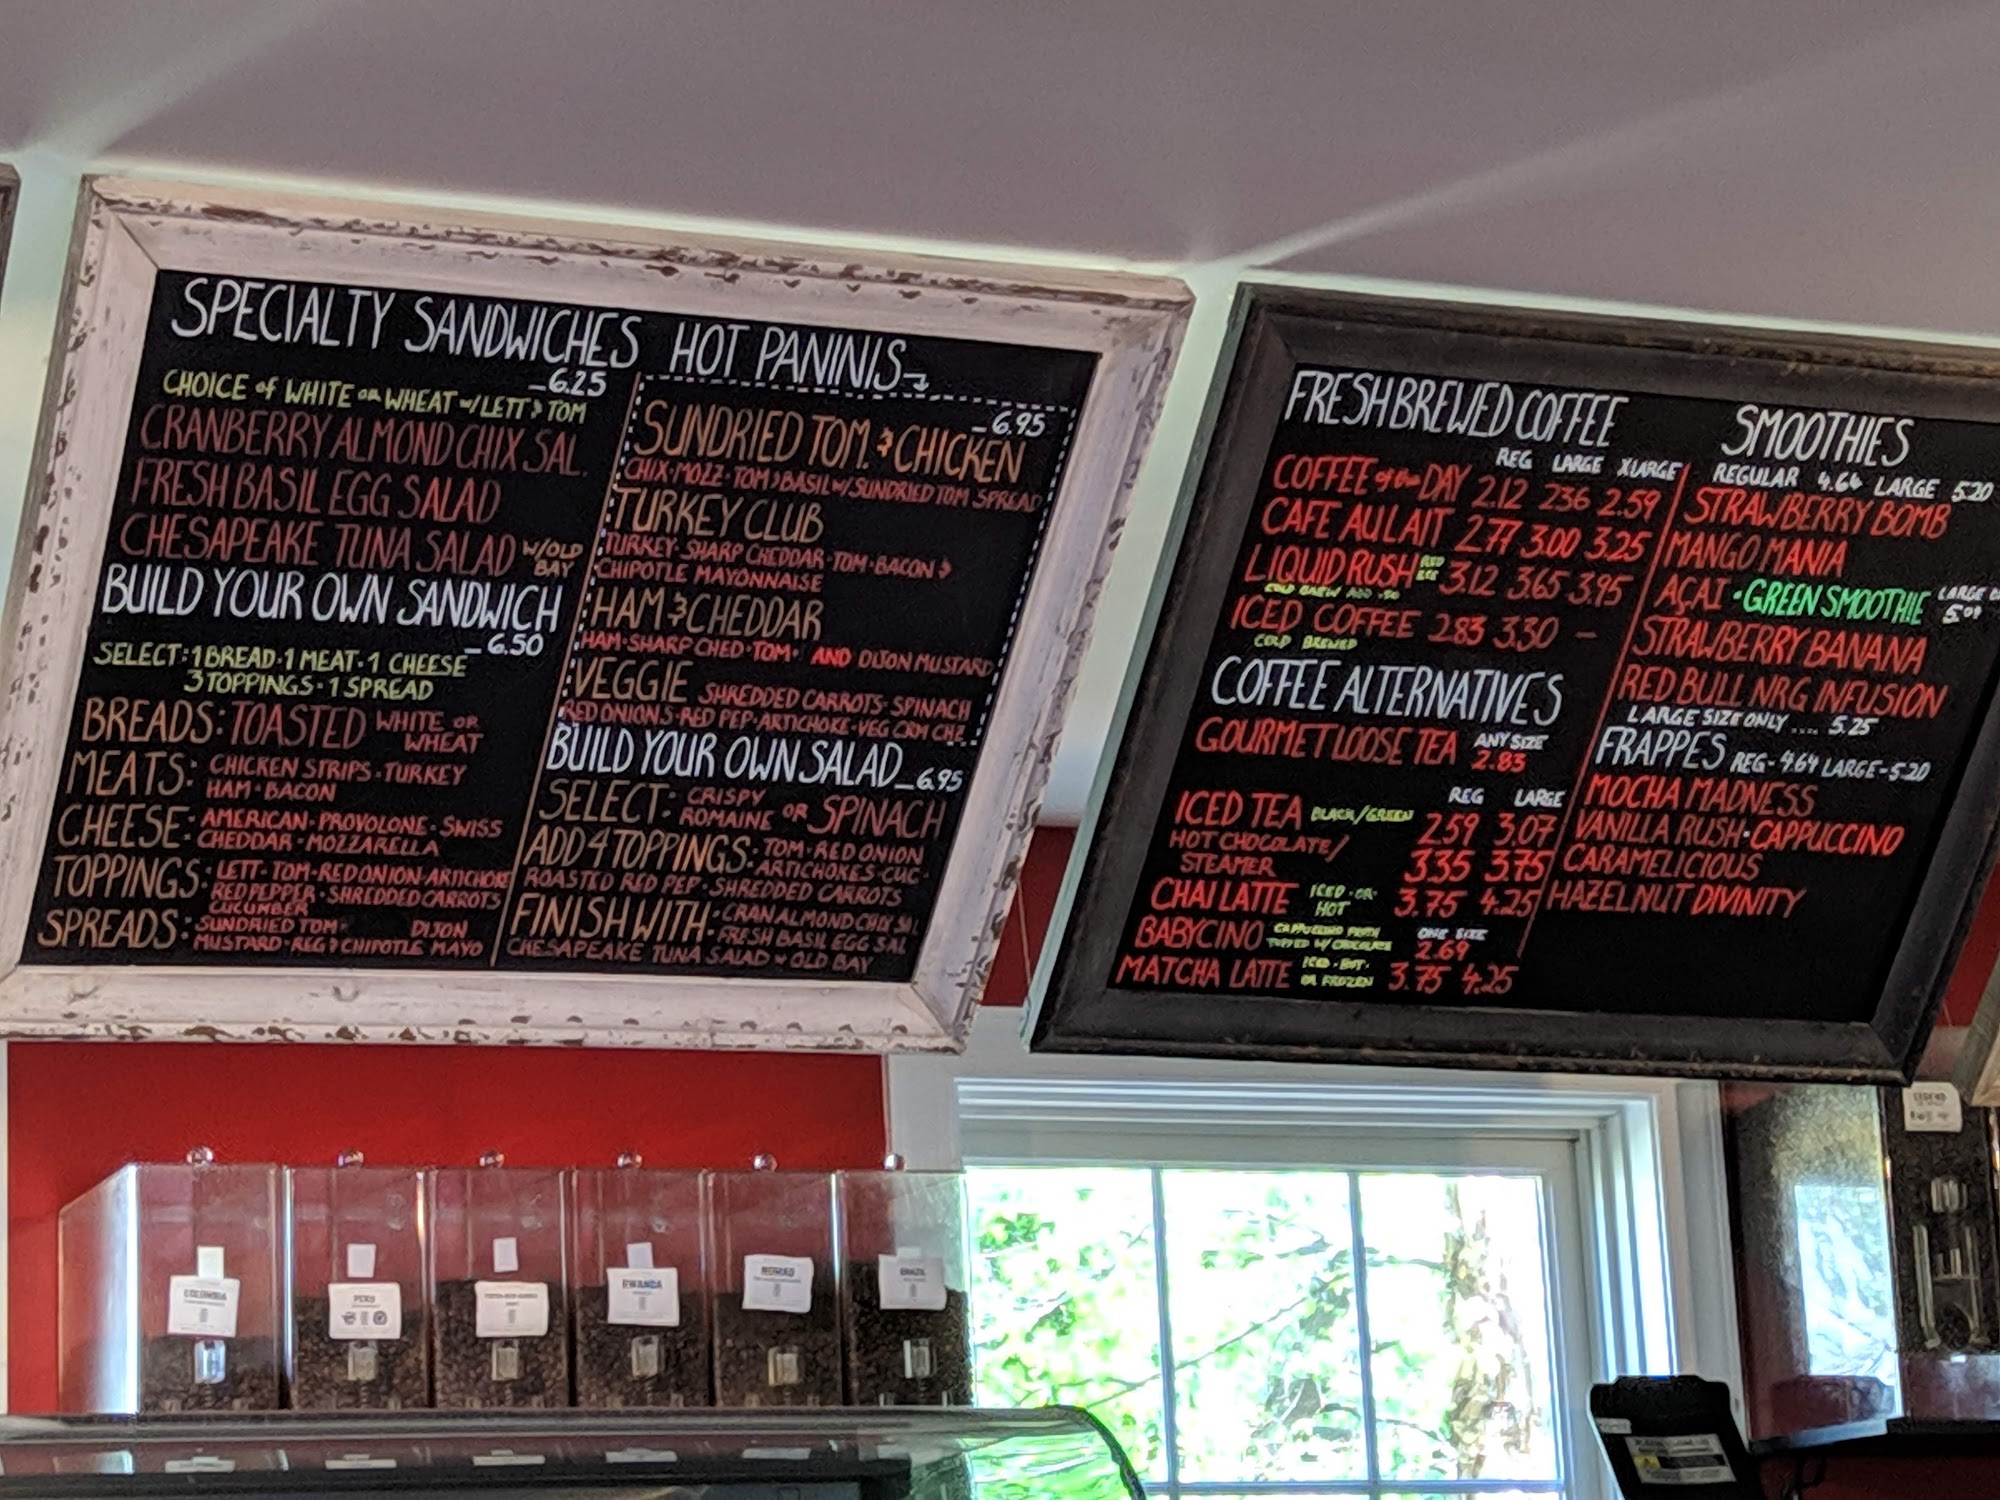 SPECIALTY SANDWICHES
6.25
CHOICE of WHITE OR WHEAT w/ LETT & TOM
CRANBERRY ALMOND CHIX SAL.
FRESH BASIL EGG SALAD
CHESAPEAKE TUNA SALAD W/OLD BAY
BUILD YOUR OWN SANDWICH
6.50
SELECT: 1 BREAD · 1 MEAT · 1 CHEESE
3 TOPPINGS · 1 SPREAD
BREADS: TOASTED WHITE OR WHEAT
MEATS: CHICKEN STRIPS · TURKEY
HAM · BACON
CHEESE: AMERICAN · PROVOLONE · SWISS
CHEDDAR · MOZZARELLA
TOPPINGS: LETT · TOM · RED ONION · ARTICHOKE
RED PEPPER · SHREDDED CARROTS
CUCUMBER
SPREADS: SUNDRIED TOM · DIJON
MUSTARD · REG & CHIPOTLE MAYO
HOT PANINIS
6.95
SUNDRIED TOM. & CHICKEN
CHIX · MOZZ · TOM & BASIL w/ SUNDRIED TOM SPREAD
TURKEY CLUB
TURKEY · SHARP CHEDDAR · TOM · BACON &
CHIPOTLE MAYONNAISE
HAM & CHEDDAR
HAM · SHARP CHED · TOM · AND DIJON MUSTARD
VEGGIE SHREDDED CARROTS · SPINACH
RED ONIONS · RED PEP · ARTICHOKE · VEG CRM CHZ
BUILD YOUR OWN SALAD 6.95
SELECT: CRISPY ROMAINE OR SPINACH
ADD 4 TOPPINGS: TOM · RED ONION
ARTICHOKES · CUC ·
ROASTED RED PEP · SHREDDED CARROTS
FINISH WITH: CRAN ALMOND CHIX SAL
FRESH BASIL EGG SAL
CHESAPEAKE TUNA SALAD w OLD BAY
FRESH BREWED COFFEE
REG LARGE XLARGE
COFFEE of the DAY 2.12 2.36 2.59
CAFE AU LAIT 2.77 3.00 3.25
LIQUID RUSH RED EYE 3.12 3.65 3.95
COLD BREW ADD .50
ICED COFFEE 2.83 3.30 -
COLD BREWED
COFFEE ALTERNATIVES
GOURMET LOOSE TEA ANY SIZE 2.83
REG LARGE
ICED TEA BLACK/GREEN 2.59 3.07
HOT CHOCOLATE/
STEAMER 3.35 3.75
CHAI LATTE ICED · OR HOT 3.75 4.25
BABYCINO CAPPUCCINO FROTH TOPPED W/ CHOCOLATE ONE SIZE 2.69
MATCHA LATTE ICED · HOT · OR FROZEN 3.75 4.25
SMOOTHIES
REGULAR 4.64 LARGE 5.20
STRAWBERRY BOMB
MANGO MANIA
AÇAI · GREEN SMOOTHIE LARGE
STRAWBERRY BANANA
RED BULL NRG INFUSION
LARGE SIZE ONLY .... 5.25
FRAPPES REG - 4.64 LARGE - 5.20
MOCHA MADNESS
VANILLA RUSH · CAPPUCCINO
CARAMELICIOUS
HAZELNUT DIVINITY
COLOMBIA
PERU
RWANDA
NOMAD
BRAZIL
LEGEND